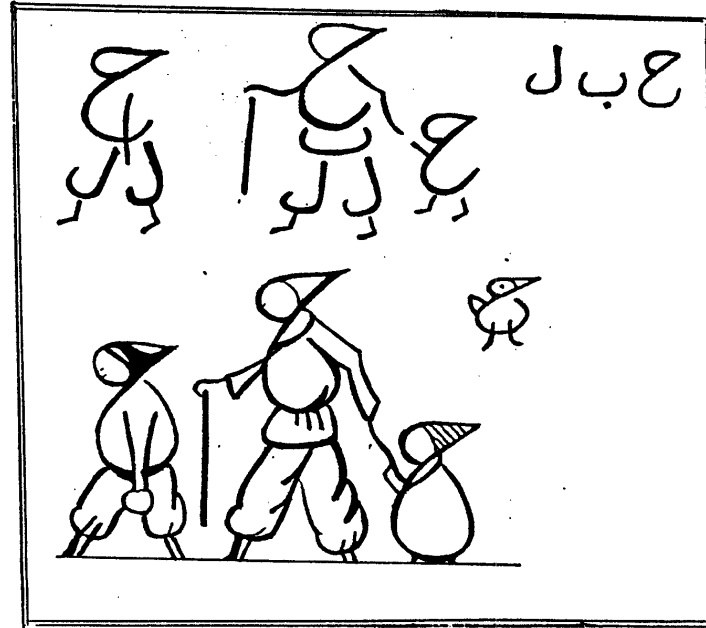 ح ب ل